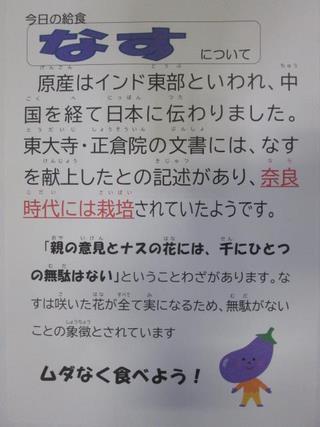 今日の給食
なすについて
原産はインド東部といわれ、中
国を経て日本に伝わりました。
東大寺・正倉院の文書には、なす
を献上したとの記述があり、奈良
時代には栽培されていたようです。
「親の意見とナスの花には、千にひとつ
の無駄はない」ということわざがあります。な
すは咲いた花が全て実になるため、無駄がない
ことの象徴とされています
ムダなく食べよう！